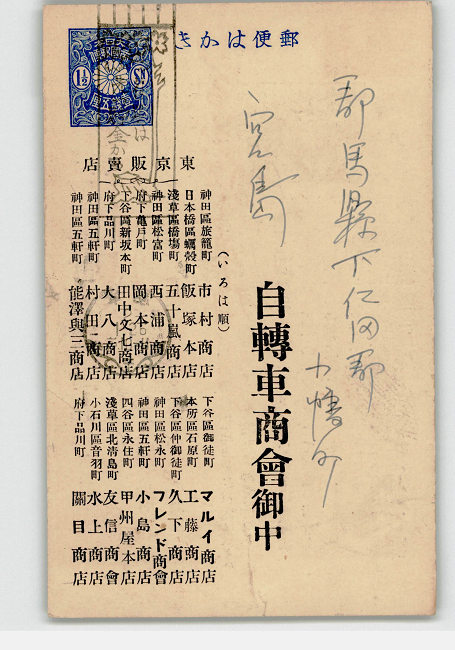 郵便はかき
大日本
帝國郵便
1½ Sn.
壹錢五厘
群馬縣下仁田郡
八幡町
宮島
自轉車商會御中
(いろは順)
東京販賣店
神田區旅籠町 市村商店
日本橋區蠣殼町 飯塚本店
淺草區橋塲町 五十嵐商店
神田區松富町 西浦商店
府下龜戸町 岡本商店
下谷區新坂本町 田中文七商店
府下品川町 大八商店
神田區五軒町 村田商店
神田區五軒町 能澤與三商店
下谷區御徒町 マルイ商店
本所區石原町 工藤商店
下谷區仲御徒町 久下商店
神田區松永町 フレンド商會
神田區五軒町 小島商店
四谷區永住町 甲州屋本店
淺草區北清島町 友信商會
小石川區音羽町 水上商店
府下品川町 關目商店